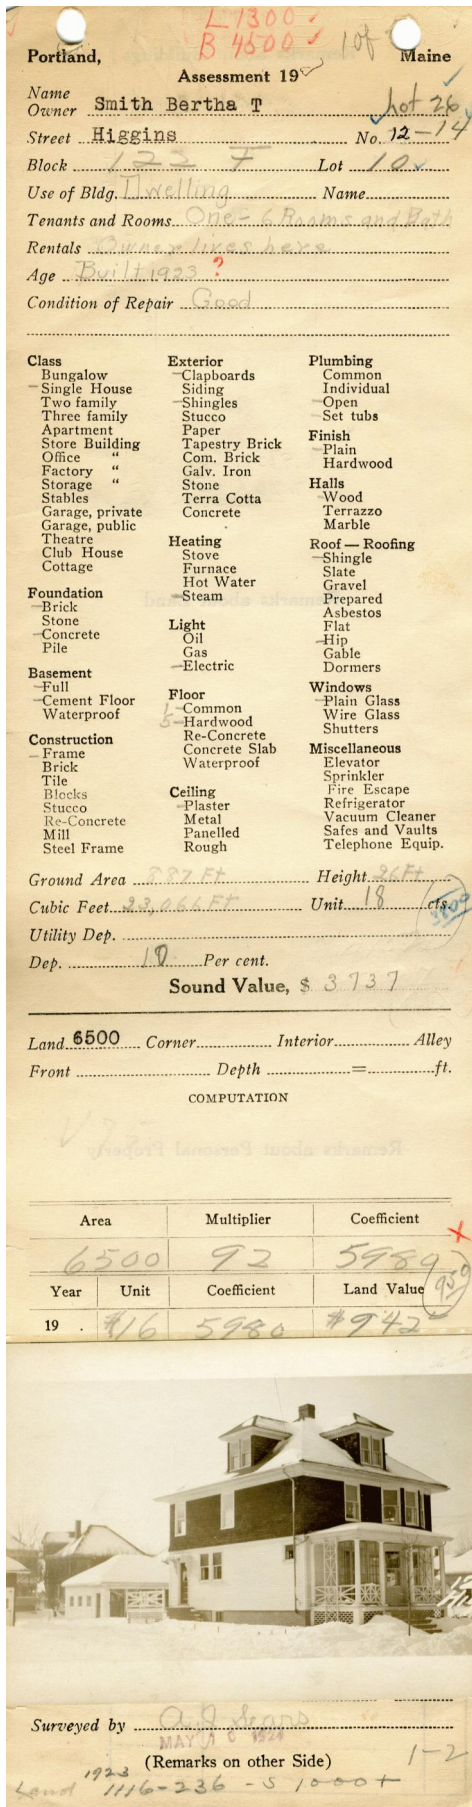 L 1300
B 4500
1 of
Portland, Maine
Assessment 19
Lot 26
Name
Owner Smith Bertha T
Street Higgins No. 12-14
Block 122 F Lot 10
Use of Bldg. Dwelling Name
Tenants and Rooms One - 6 Rooms and Bath
Rentals Owner lives here
Age Built 1923 ?
Condition of Repair Good
Class
Bungalow
Single House
Two family
Three family
Apartment
Store Building
Office "
Factory "
Storage "
Stables
Garage, private
Garage, public
Theatre
Club House
Cottage
Foundation
Brick
Stone
Concrete
Pile
Basement
Full
Cement Floor
Waterproof
Construction
Frame
Brick
Tile
Blocks
Stucco
Re-Concrete
Mill
Steel Frame
Exterior
Clapboards
Siding
Shingles
Stucco
Paper
Tapestry Brick
Com. Brick
Galv. Iron
Stone
Terra Cotta
Concrete
Heating
Stove
Furnace
Hot Water
Steam
Light
Oil
Gas
Electric
Floor
1 Common
5 Hardwood
Re-Concrete
Concrete Slab
Waterproof
Ceiling
Plaster
Metal
Panelled
Rough
Plumbing
Common
Individual
Open
Set tubs
Finish
Plain
Hardwood
Halls
Wood
Terrazzo
Marble
Roof — Roofing
Shingle
Slate
Gravel
Prepared
Asbestos
Flat
Hip
Gable
Dormers
Windows
Plain Glass
Wire Glass
Shutters
Miscellaneous
Elevator
Sprinkler
Fire Escape
Refrigerator
Vacuum Cleaner
Safes and Vaults
Telephone Equip.
Ground Area 887 Ft Height 26 Ft
Cubic Feet 23,066 Ft Unit 18 cts.
Utility Dep.
Dep. 10 Per cent.
Sound Value, $ 3737
Land 6500 Corner Interior Alley
Front Depth = ft.
COMPUTATION
Area Multiplier Coefficient
6500 92 5980
950
Year Unit Coefficient Land Value
19 . $16 5980 $942
Surveyed by A J Sears
MAY 1924
(Remarks on other Side)
1-2
1923
Land 1116-236 - S 1000+